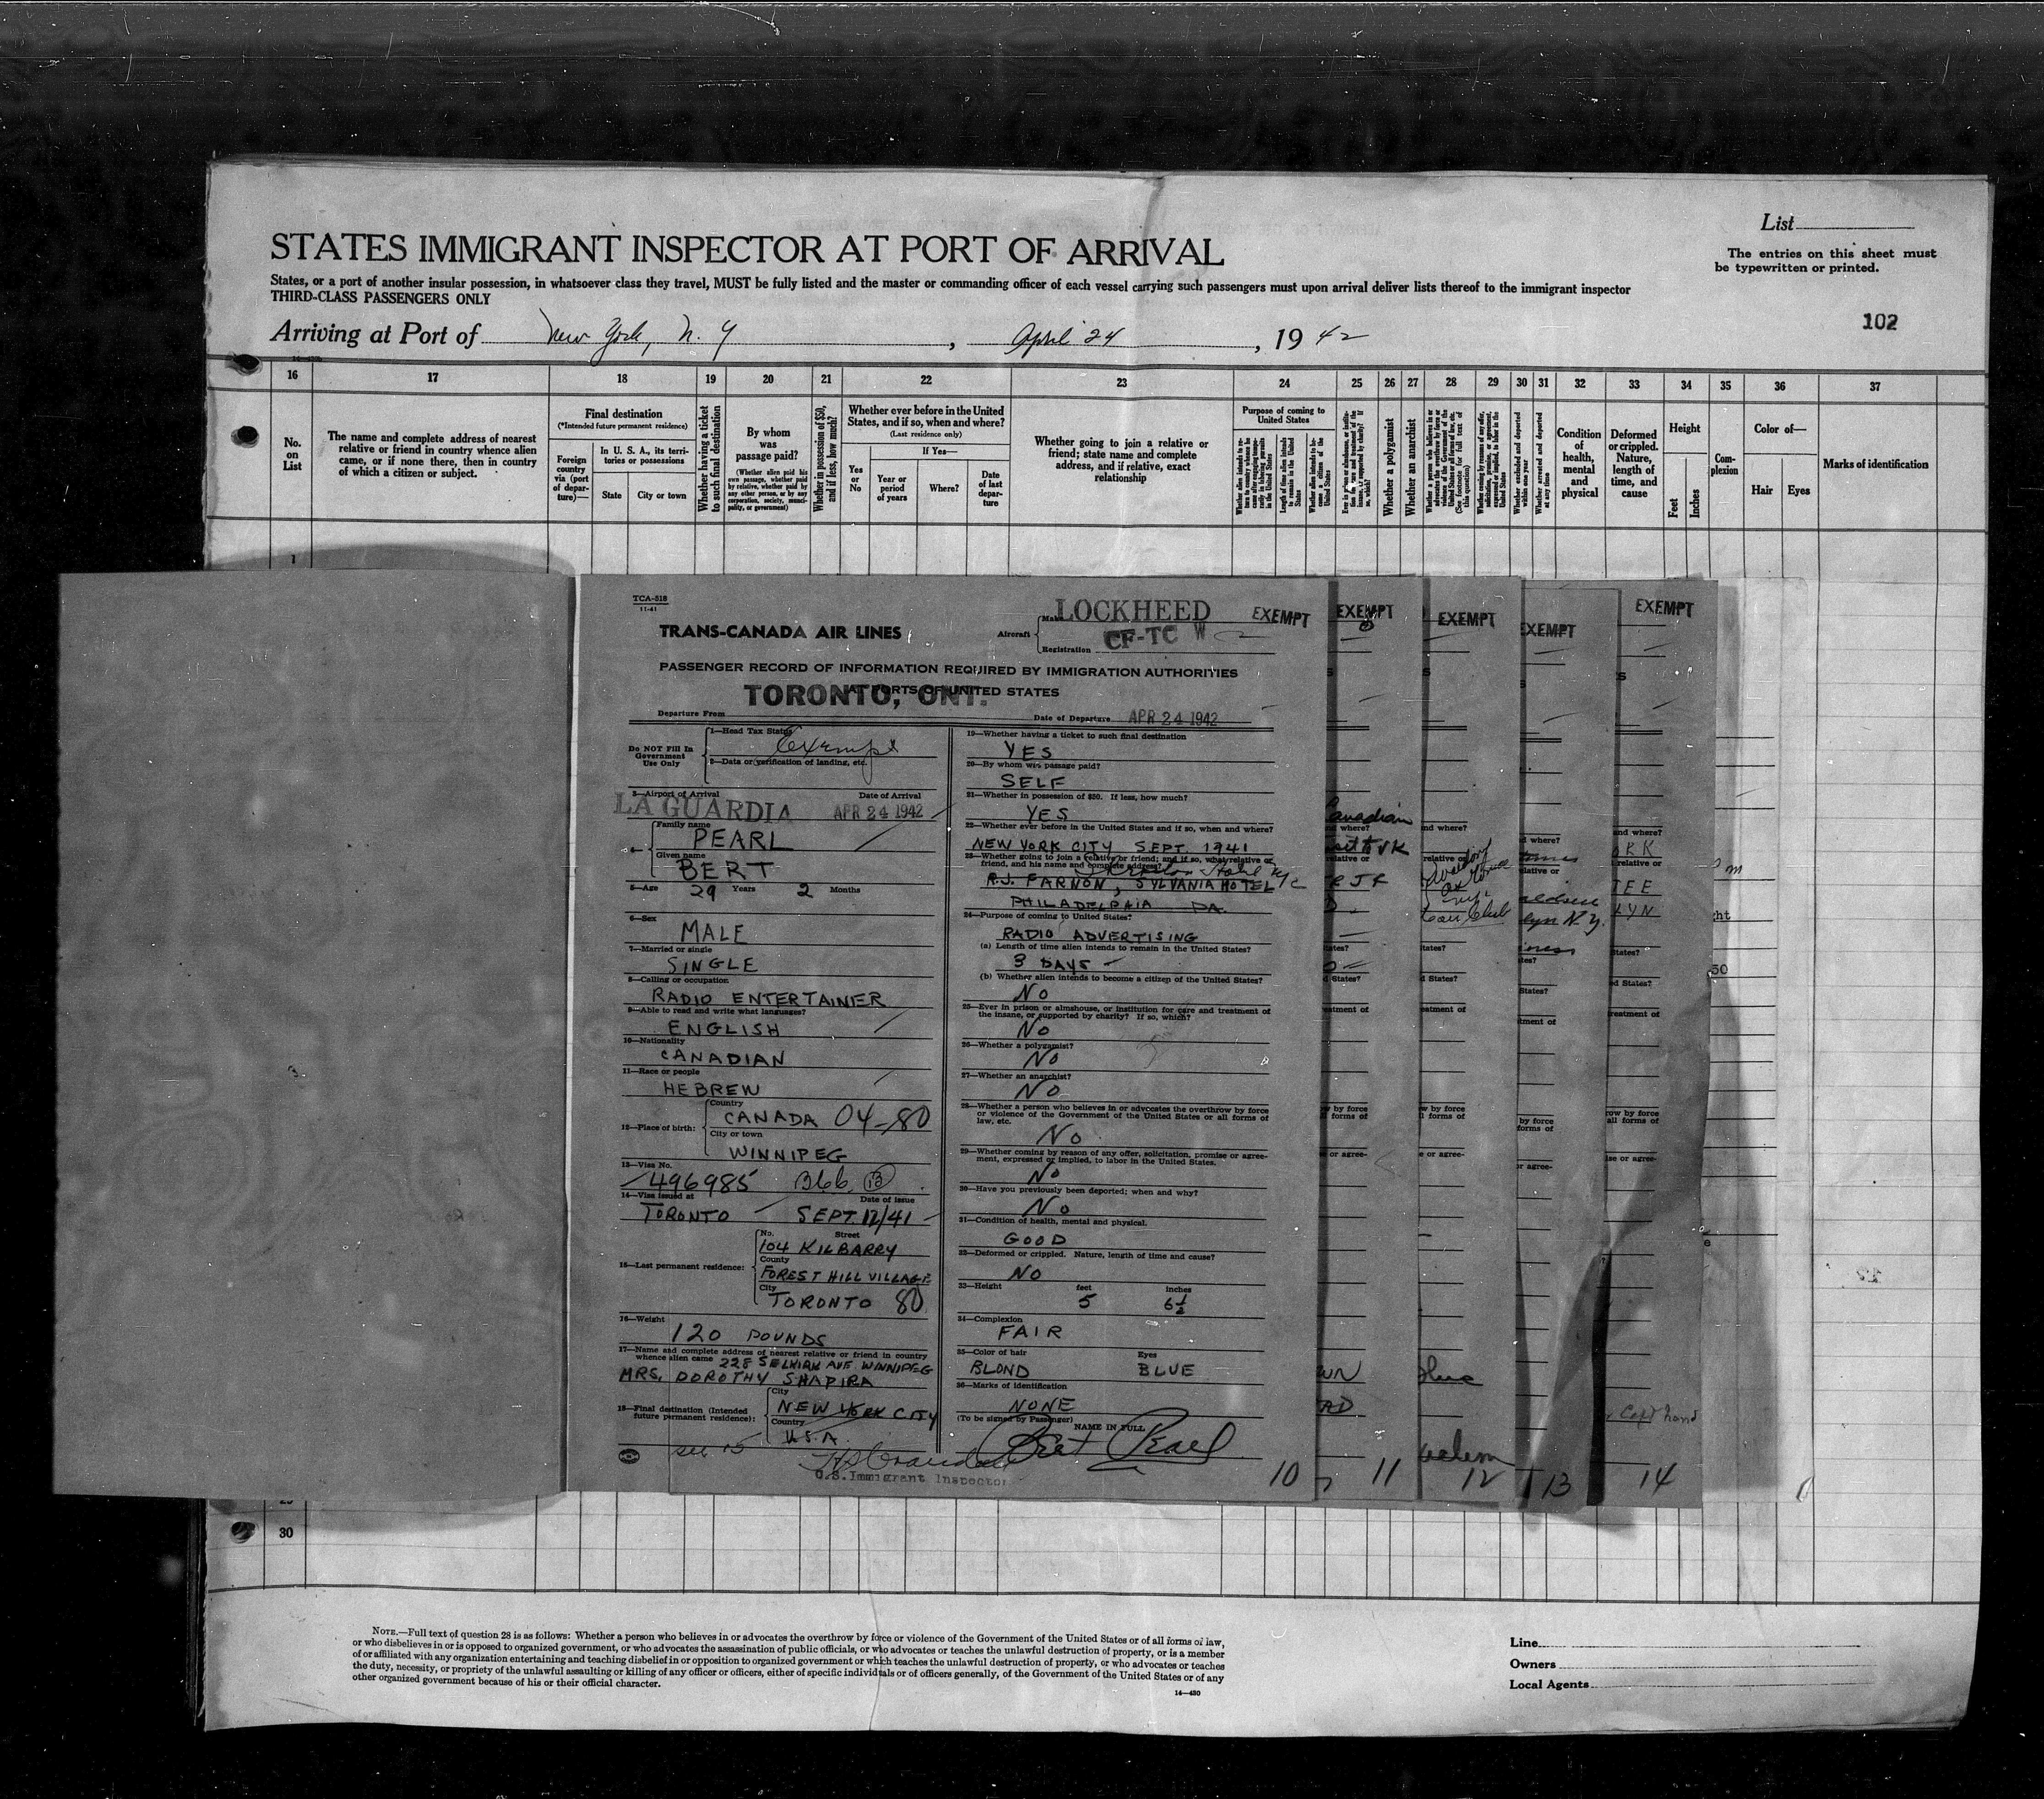 List
STATES IMMIGRANT INSPECTOR AT PORT OF ARRIVAL
The entries on this sheet must
be typewritten or printed.
States, or a port of another insular possession, in whatsoever class they travel, MUST be fully listed and the master or commanding officer of each vessel carrying such passengers must upon arrival deliver lists thereof to the immigrant inspector
THIRD-CLASS PASSENGERS ONLY
102
Arriving at Port of New York, N. Y, April 24, 1942
16 17 18 19 20 21 22 23 24 25 26 27 28 29 30 31 32 33 34 35 36 37
No. on List
The name and complete address of nearest relative or friend in country whence alien came, or if none there, then in country of which a citizen or subject.
Final destination
(*Intended future permanent residence)
Foreign country via (port of departure)—
In U. S. A., its territories or possessions
State
City or town
Whether having a ticket to such final destination
By whom was passage paid?
(Whether alien paid his own passage, whether paid by relative, whether paid by any other person, or by any corporation, society, municipality, or government)
Whether in possession of $50, and if less, how much?
Whether ever before in the United States, and if so, when and where?
(Last residence only)
Yes or No
If Yes—
Year or period of years
Where?
Date of last departure
Whether going to join a relative or friend; state name and complete address, and if relative, exact relationship
Purpose of coming to United States
Length of time alien intends to remain in the United States
Whether alien intends to become a citizen of the United States
Whether a polygamist
Whether an anarchist
Whether excluded and deported within one year
Whether arrested and deported at any time
Condition of health, mental and physical
Deformed or crippled. Nature, length of time, and cause
Height
Feet
Inches
Complexion
Color of—
Hair
Eyes
Marks of identification
1
TCA-518
11-41
TRANS-CANADA AIR LINES
Aircraft
Make LOCKHEED
Registration CF-TC W
EXEMPT
EXEMPT
EXEMPT
EXEMPT
EXEMPT
PASSENGER RECORD OF INFORMATION REQUIRED BY IMMIGRATION AUTHORITIES
AT PORTS OF UNITED STATES
TORONTO, ONT.
Departure From
Date of Departure APR 24 1942
Do NOT Fill In
Government
Use Only
1—Head Tax Status
Exempt
2—Data or verification of landing, etc.
3—Airport of Arrival
Date of Arrival
LA GUARDIA APR 24 1942
4—
Family name
PEARL
Given name
BERT
5—Age 29 Years 2 Months
6—Sex
MALE
7—Married or single
SINGLE
8—Calling or occupation
RADIO ENTERTAINER
9—Able to read and write what languages?
ENGLISH
10—Nationality
CANADIAN
11—Race or people
HEBREW
12—Place of birth:
Country
CANADA 04-80
City or town
WINNIPEG
13—Visa No.
496985 3bb. 13
14—Visa issued at
Date of issue
TORONTO SEPT. 12/41
15—Last permanent residence:
No. Street
104 KILBARRY
County
FOREST HILL VILLAGE
City
TORONTO 80
16—Weight
120 POUNDS
17—Name and complete address of nearest relative or friend in country
whence alien came 228 SELKIRK AVE. WINNIPEG
MRS. DOROTHY SHAPIRA
18—Final destination (Intended
future permanent residence):
City
NEW YORK CITY
Country
U.S.A.
U.S. Immigrant Inspector
19—Whether having a ticket to such final destination
YES
20—By whom was passage paid?
SELF
21—Whether in possession of $50. If less, how much?
YES
22—Whether ever before in the United States and if so, when and where?
NEW YORK CITY SEPT. 1941
23—Whether going to join a relative or friend; and if so, what relative or
friend, and his name and complete address?
R.J. FARNON, SYLVANIA HOTEL
PHILADELPHIA PA.
24—Purpose of coming to United States?
RADIO ADVERTISING
(a) Length of time alien intends to remain in the United States?
3 DAYS
(b) Whether alien intends to become a citizen of the United States?
NO
25—Ever in prison or almshouse, or institution for care and treatment of
the insane, or supported by charity? If so, which?
NO
26—Whether a polygamist?
NO
27—Whether an anarchist?
NO
28—Whether a person who believes in or advocates the overthrow by force
or violence of the Government of the United States or all forms of
law, etc.
NO
29—Whether coming by reason of any offer, solicitation, promise or agree-
ment, expressed or implied, to labor in the United States.
NO
30—Have you previously been deported; when and why?
NO
31—Condition of health, mental and physical.
GOOD
32—Deformed or crippled. Nature, length of time and cause?
NO
33—Height feet inches
5 6½
34—Complexion
FAIR
35—Color of hair Eyes
BLOND BLUE
36—Marks of identification
NONE
(To be signed by Passenger)
NAME IN FULL
Bert Pearl
10 11 12 13 14
30
NOTE.—Full text of question 28 is as follows: Whether a person who believes in or advocates the overthrow by force or violence of the Government of the United States or of all forms of law,
or who disbelieves in or is opposed to organized government, or who advocates the assassination of public officials, or who advocates or teaches the unlawful destruction of property, or is a member
of or affiliated with any organization entertaining and teaching disbelief in or opposition to organized government or which teaches the unlawful destruction of property, or who advocates or teaches
the duty, necessity, or propriety of the unlawful assaulting or killing of any officer or officers, either of specific individuals or of officers generally, of the Government of the United States or of any
other organized government because of his or their official character.
14—430
Line
Owners
Local Agents